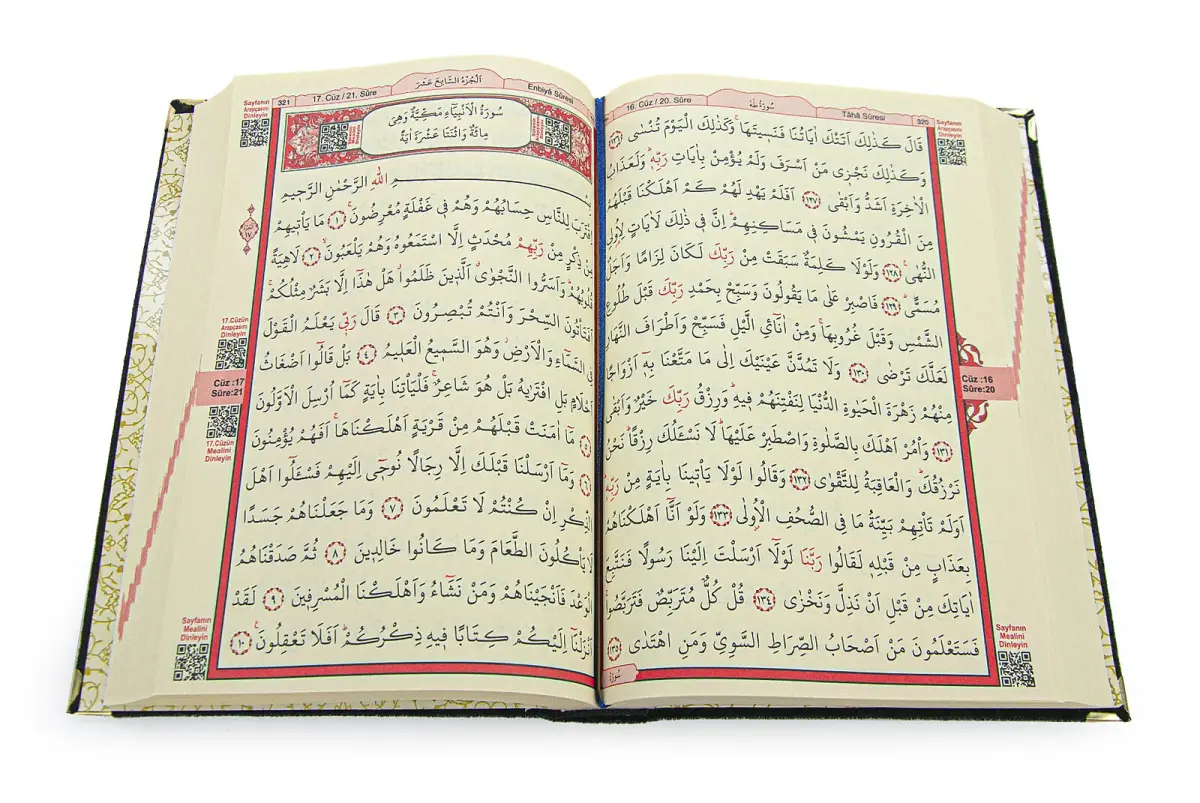 16. Cüz / 20. Sûre
سُورَةُ طٰهٰ
Tâhâ Sûresi
320
Sayfanın
Arapçasını
Dinleyin
قَالَ كَذٰلِكَ اَتَتْكَ اٰيَاتُنَا فَنَسٖيتَهَاۚ وَكَذٰلِكَ الْيَوْمَ تُنْسٰى ﴿١٢٦﴾
وَكَذٰلِكَ نَجْزٖى مَنْ اَسْرَفَ وَلَمْ يُؤْمِنْ بِاٰيَاتِ رَبِّهٖؕ وَلَعَذَابُ
الْاٰخِرَةِ اَشَدُّ وَاَبْقٰى ﴿١٢٧﴾ اَفَلَمْ يَهْدِ لَهُمْ كَمْ اَهْلَكْنَا قَبْلَهُمْ
مِنَ الْقُرُونِ يَمْشُونَ فٖى مَسَاكِنِهِمْؕ اِنَّ فٖى ذٰلِكَ لَاٰيَاتٍ لِاُولِى
النُّهٰىࣖ ﴿١٢٨﴾ وَلَوْلَا كَلِمَةٌ سَبَقَتْ مِنْ رَبِّكَ لَكَانَ لِزَامًا وَاَجَلٌ
مُسَمًّىؕ ﴿١٢٩﴾ فَاصْبِرْ عَلٰى مَا يَقُولُونَ وَسَبِّحْ بِحَمْدِ رَبِّكَ قَبْلَ طُلُوعِ
الشَّمْسِ وَقَبْلَ غُرُوبِهَاۚ وَمِنْ اٰنَٓائِ الَّيْلِ فَسَبِّحْ وَاَطْرَافَ النَّهَارِ
لَعَلَّكَ تَرْضٰى ﴿١٣٠﴾ وَلَا تَمُدَّنَّ عَيْنَيْكَ اِلٰى مَا مَتَّعْنَا بِهٖٓ اَزْوَاجًا
مِنْهُمْ زَهْرَةَ الْحَيٰوةِ الدُّنْيَا لِنَفْتِنَهُمْ فٖيهِؕ وَرِزْقُ رَبِّكَ خَيْرٌ وَاَبْقٰى
﴿١٣١﴾ وَاْمُرْ اَهْلَكَ بِالصَّلٰوةِ وَاصْطَبِرْ عَلَيْهَاؕ لَا نَسْـَٔلُكَ رِزْقًاؕ نَحْنُ
نَرْزُقُكَؕ وَالْعَاقِبَةُ لِلتَّقْوٰى ﴿١٣٢﴾ وَقَالُوا لَوْلَا يَاْتٖينَا بِاٰيَةٍ مِنْ رَبِّهٖؕ
اَوَلَمْ تَاْتِهِمْ بَيِّنَةُ مَا فِى الصُّحُفِ الْاُولٰى ﴿١٣٣﴾ وَلَوْ اَنَّٓا اَهْلَكْنَاهُمْ
بِعَذَابٍ مِنْ قَبْلِهٖ لَقَالُوا رَبَّنَا لَوْلَٓا اَرْسَلْتَ اِلَيْنَا رَسُولًا فَنَتَّبِعَ
اٰيَاتِكَ مِنْ قَبْلِ اَنْ نَذِلَّ وَنَخْزٰى ﴿١٣٤﴾ قُلْ كُلٌّ مُتَرَبِّصٌ فَتَرَبَّصُواۚ
فَسَتَعْلَمُونَ مَنْ اَصْحَابُ الصِّرَاطِ السَّوِىِّ وَمَنِ اهْتَدٰى ﴿١٣٥﴾
سُورَةُ
Cüz :16
Sûre:20
Sayfanın
Mealini
Dinleyin
Sayfanın
Arapçasını
Dinleyin
321
17. Cüz / 21. Sûre
اَلْجُزْءُ السَّابِعَ عَشَرَ
Enbiyâ Sûresi
سُورَةُ الْاَنْبِيَٓاءِ مَكِّيَّةٌ وَهِىَ
مِائَةٌ وَاثْنَتَا عَشْرَةَ اٰيَةً
بِسْمِ اللّٰهِ الرَّحْمٰنِ الرَّحٖيمِ
اِقْتَرَبَ لِلنَّاسِ حِسَابُهُمْ وَهُمْ فٖى غَفْلَةٍ مُعْرِضُونَۚ ﴿١﴾ مَا يَاْتٖيهِمْ
مِنْ ذِكْرٍ مِنْ رَبِّهِمْ مُحْدَثٍ اِلَّا اسْتَمَعُوهُ وَهُمْ يَلْعَبُونَۙ ﴿٢﴾ لَاهِيَةً
قُلُوبُهُمْؕ وَاَسَرُّوا النَّجْوَىۗ الَّذٖينَ ظَلَمُواۗ هَلْ هٰذَٓا اِلَّا بَشَرٌ مِثْلُكُمْۚ
اَفَتَاْتُونَ السِّحْرَ وَاَنْتُمْ تُبْصِرُونَ ﴿٣﴾ قَالَ رَبّٖى يَعْلَمُ الْقَوْلَ
فِى السَّمَٓاءِ وَالْاَرْضِؗ وَهُوَ السَّمٖيعُ الْعَلٖيمُ ﴿٤﴾ بَلْ قَالُٓوا اَضْغَاثُ
اَحْلَامٍ بَلِ افْتَرٰيهُ بَلْ هُوَ شَاعِرٌۚ فَلْيَاْتِنَا بِاٰيَةٍ كَمَٓا اُرْسِلَ الْاَوَّلُونَ
﴿٥﴾ مَٓا اٰمَنَتْ قَبْلَهُمْ مِنْ قَرْيَةٍ اَهْلَكْنَاهَاۚ اَفَهُمْ يُؤْمِنُونَ
﴿٦﴾ وَمَٓا اَرْسَلْنَا قَبْلَكَ اِلَّا رِجَالًا نُوحٖٓى اِلَيْهِمْ فَسْـَٔلُٓوا اَهْلَ
الذِّكْرِ اِنْ كُنْتُمْ لَا تَعْلَمُونَ ﴿٧﴾ وَمَا جَعَلْنَاهُمْ جَسَدًا
لَا يَاْكُلُونَ الطَّعَامَ وَمَا كَانُوا خَالِدٖينَ ﴿٨﴾ ثُمَّ صَدَقْنَاهُمُ
الْوَعْدَ فَاَنْجَيْنَاهُمْ وَمَنْ نَشَٓاءُ وَاَهْلَكْنَا الْمُسْرِفٖينَ ﴿٩﴾ لَقَدْ
اَنْزَلْنَٓا اِلَيْكُمْ كِتَابًا فٖيهِ ذِكْرُكُمْؕ اَفَلَا تَعْقِلُونَࣖ ﴿١٠﴾
17.Cüzün
Arapçasını
Dinleyin
Cüz :17
Sûre:21
17.Cüzün
Mealini
Dinleyin
Sayfanın
Mealini
Dinleyin